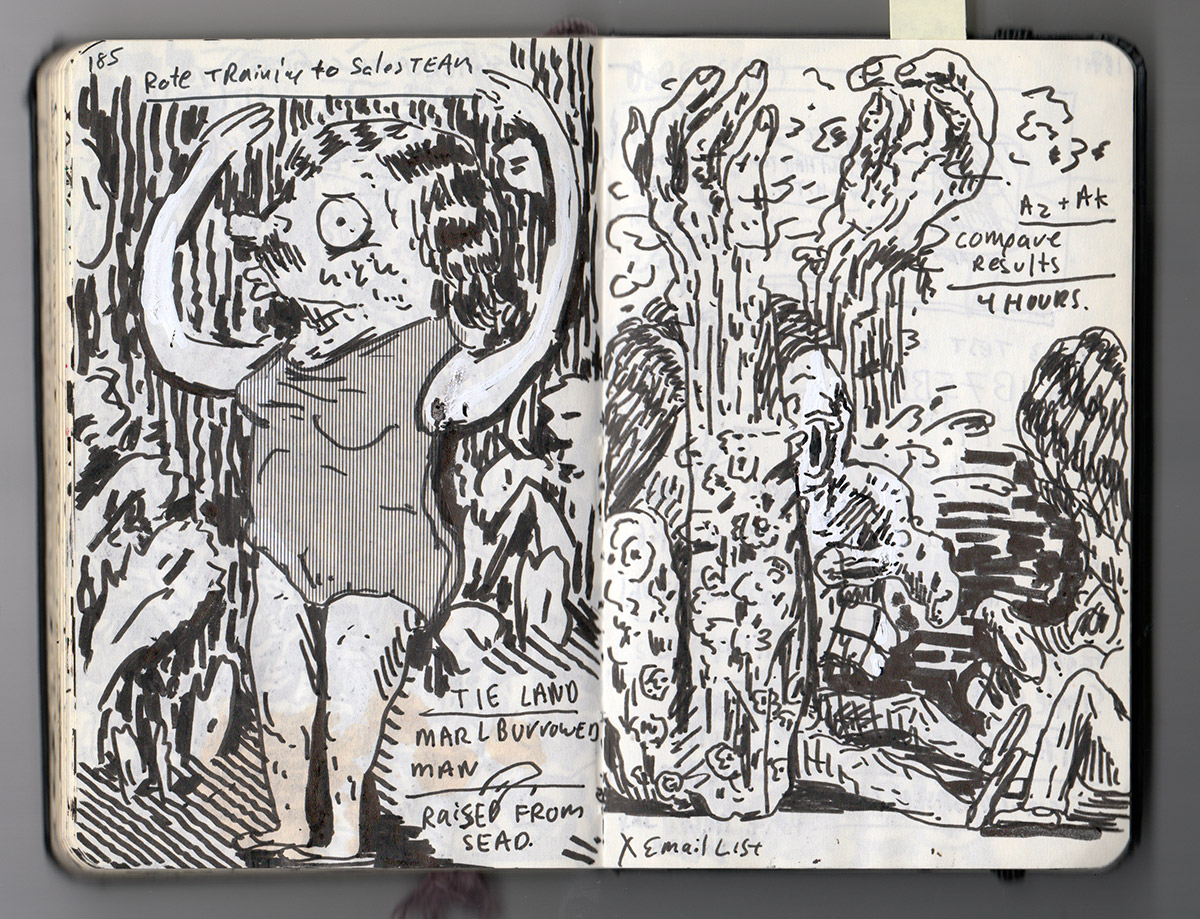 185
Rote TRaining to Sales TEAM
TIE LAND
MARLBURROWED
MAN
RAISED FROM
SEAD.
A2 + AK
compare
Results
4 HOURS.
X Email List